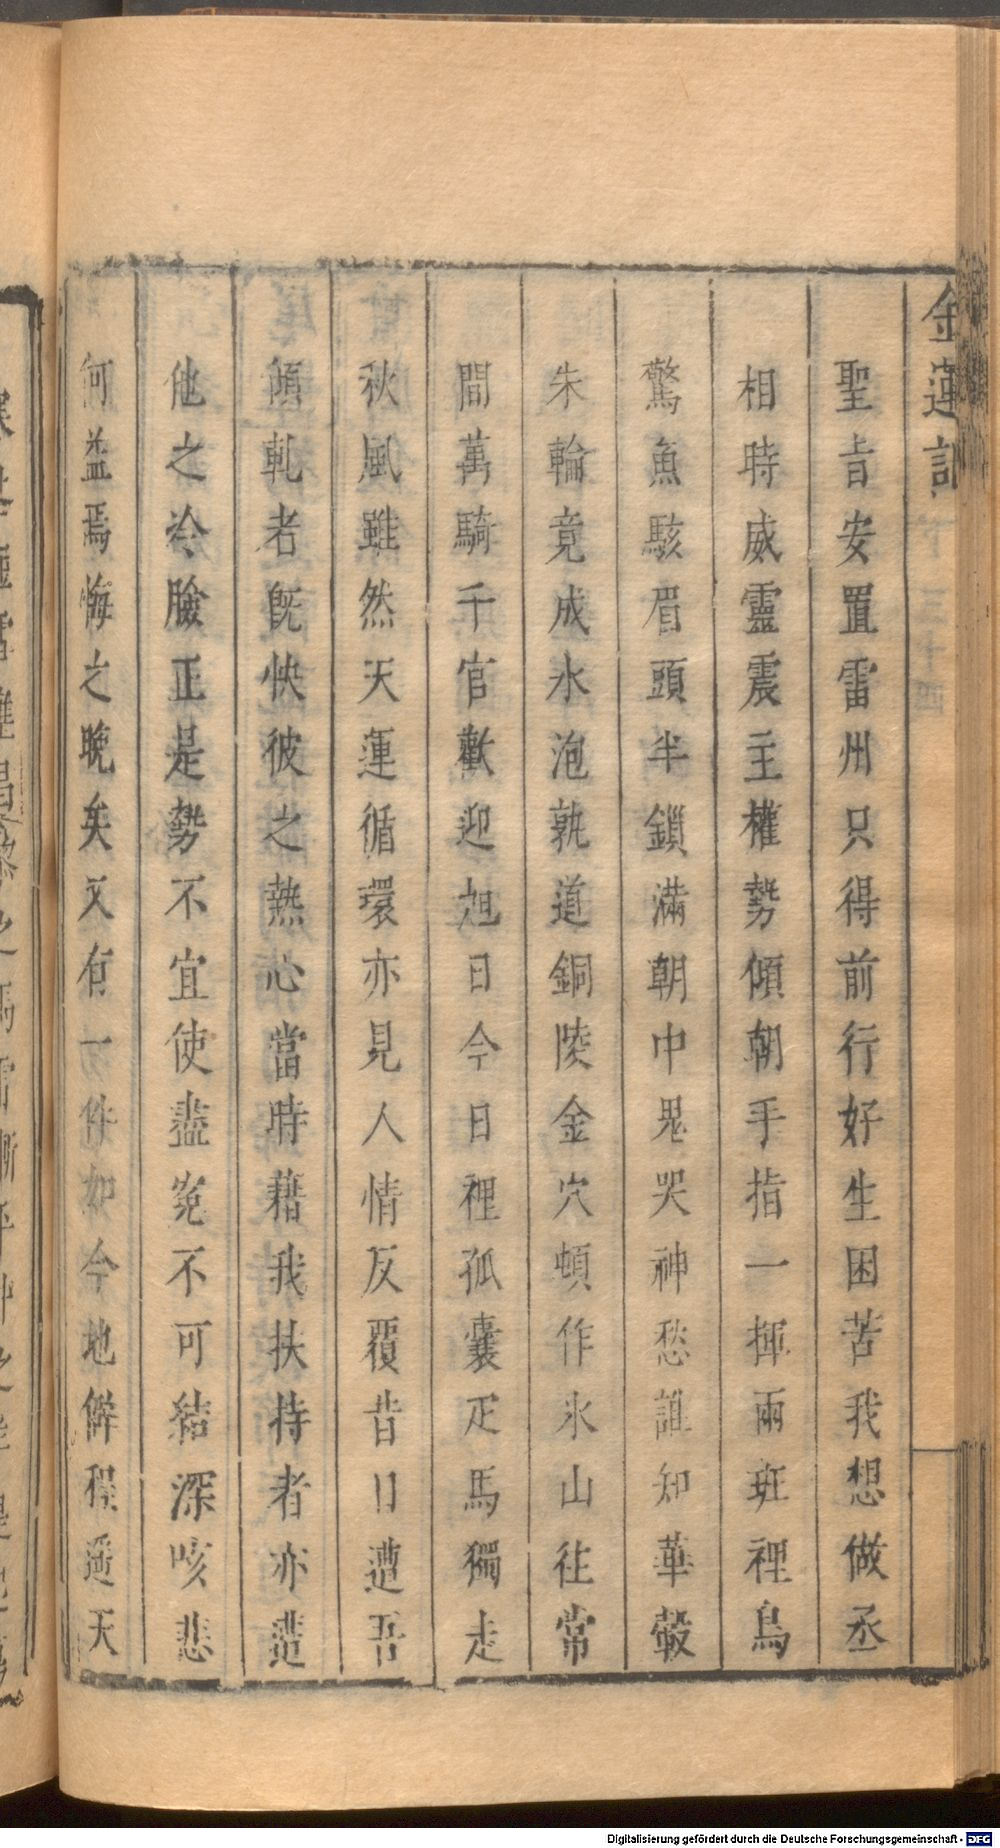 金蓮記
聖旨安置雷州只得前行好生困苦我想做丞
相時威靈震主權勢傾朝手指一揮兩班裡鳥
驚魚駭眉頭半鎖滿朝中鬼哭神愁誰知華轂
朱輪竟成水泡孰道銅陵金穴頓作氷山往常
間萬騎千官歡迎旭日今日裡孤囊疋馬獨走
秋風雖然天運循環亦見人情反覆昔日遭吾
傾軋者旣快彼之熱心當時藉我扶持者亦遣
他之冷臉正是勢不宜使盡寃不可結深咳悲
何益焉悔之晚矣又有一件如今地僻程遥天
Digitalisierung gefördert durch die Deutsche Forschungsgemeinschaft - DFG